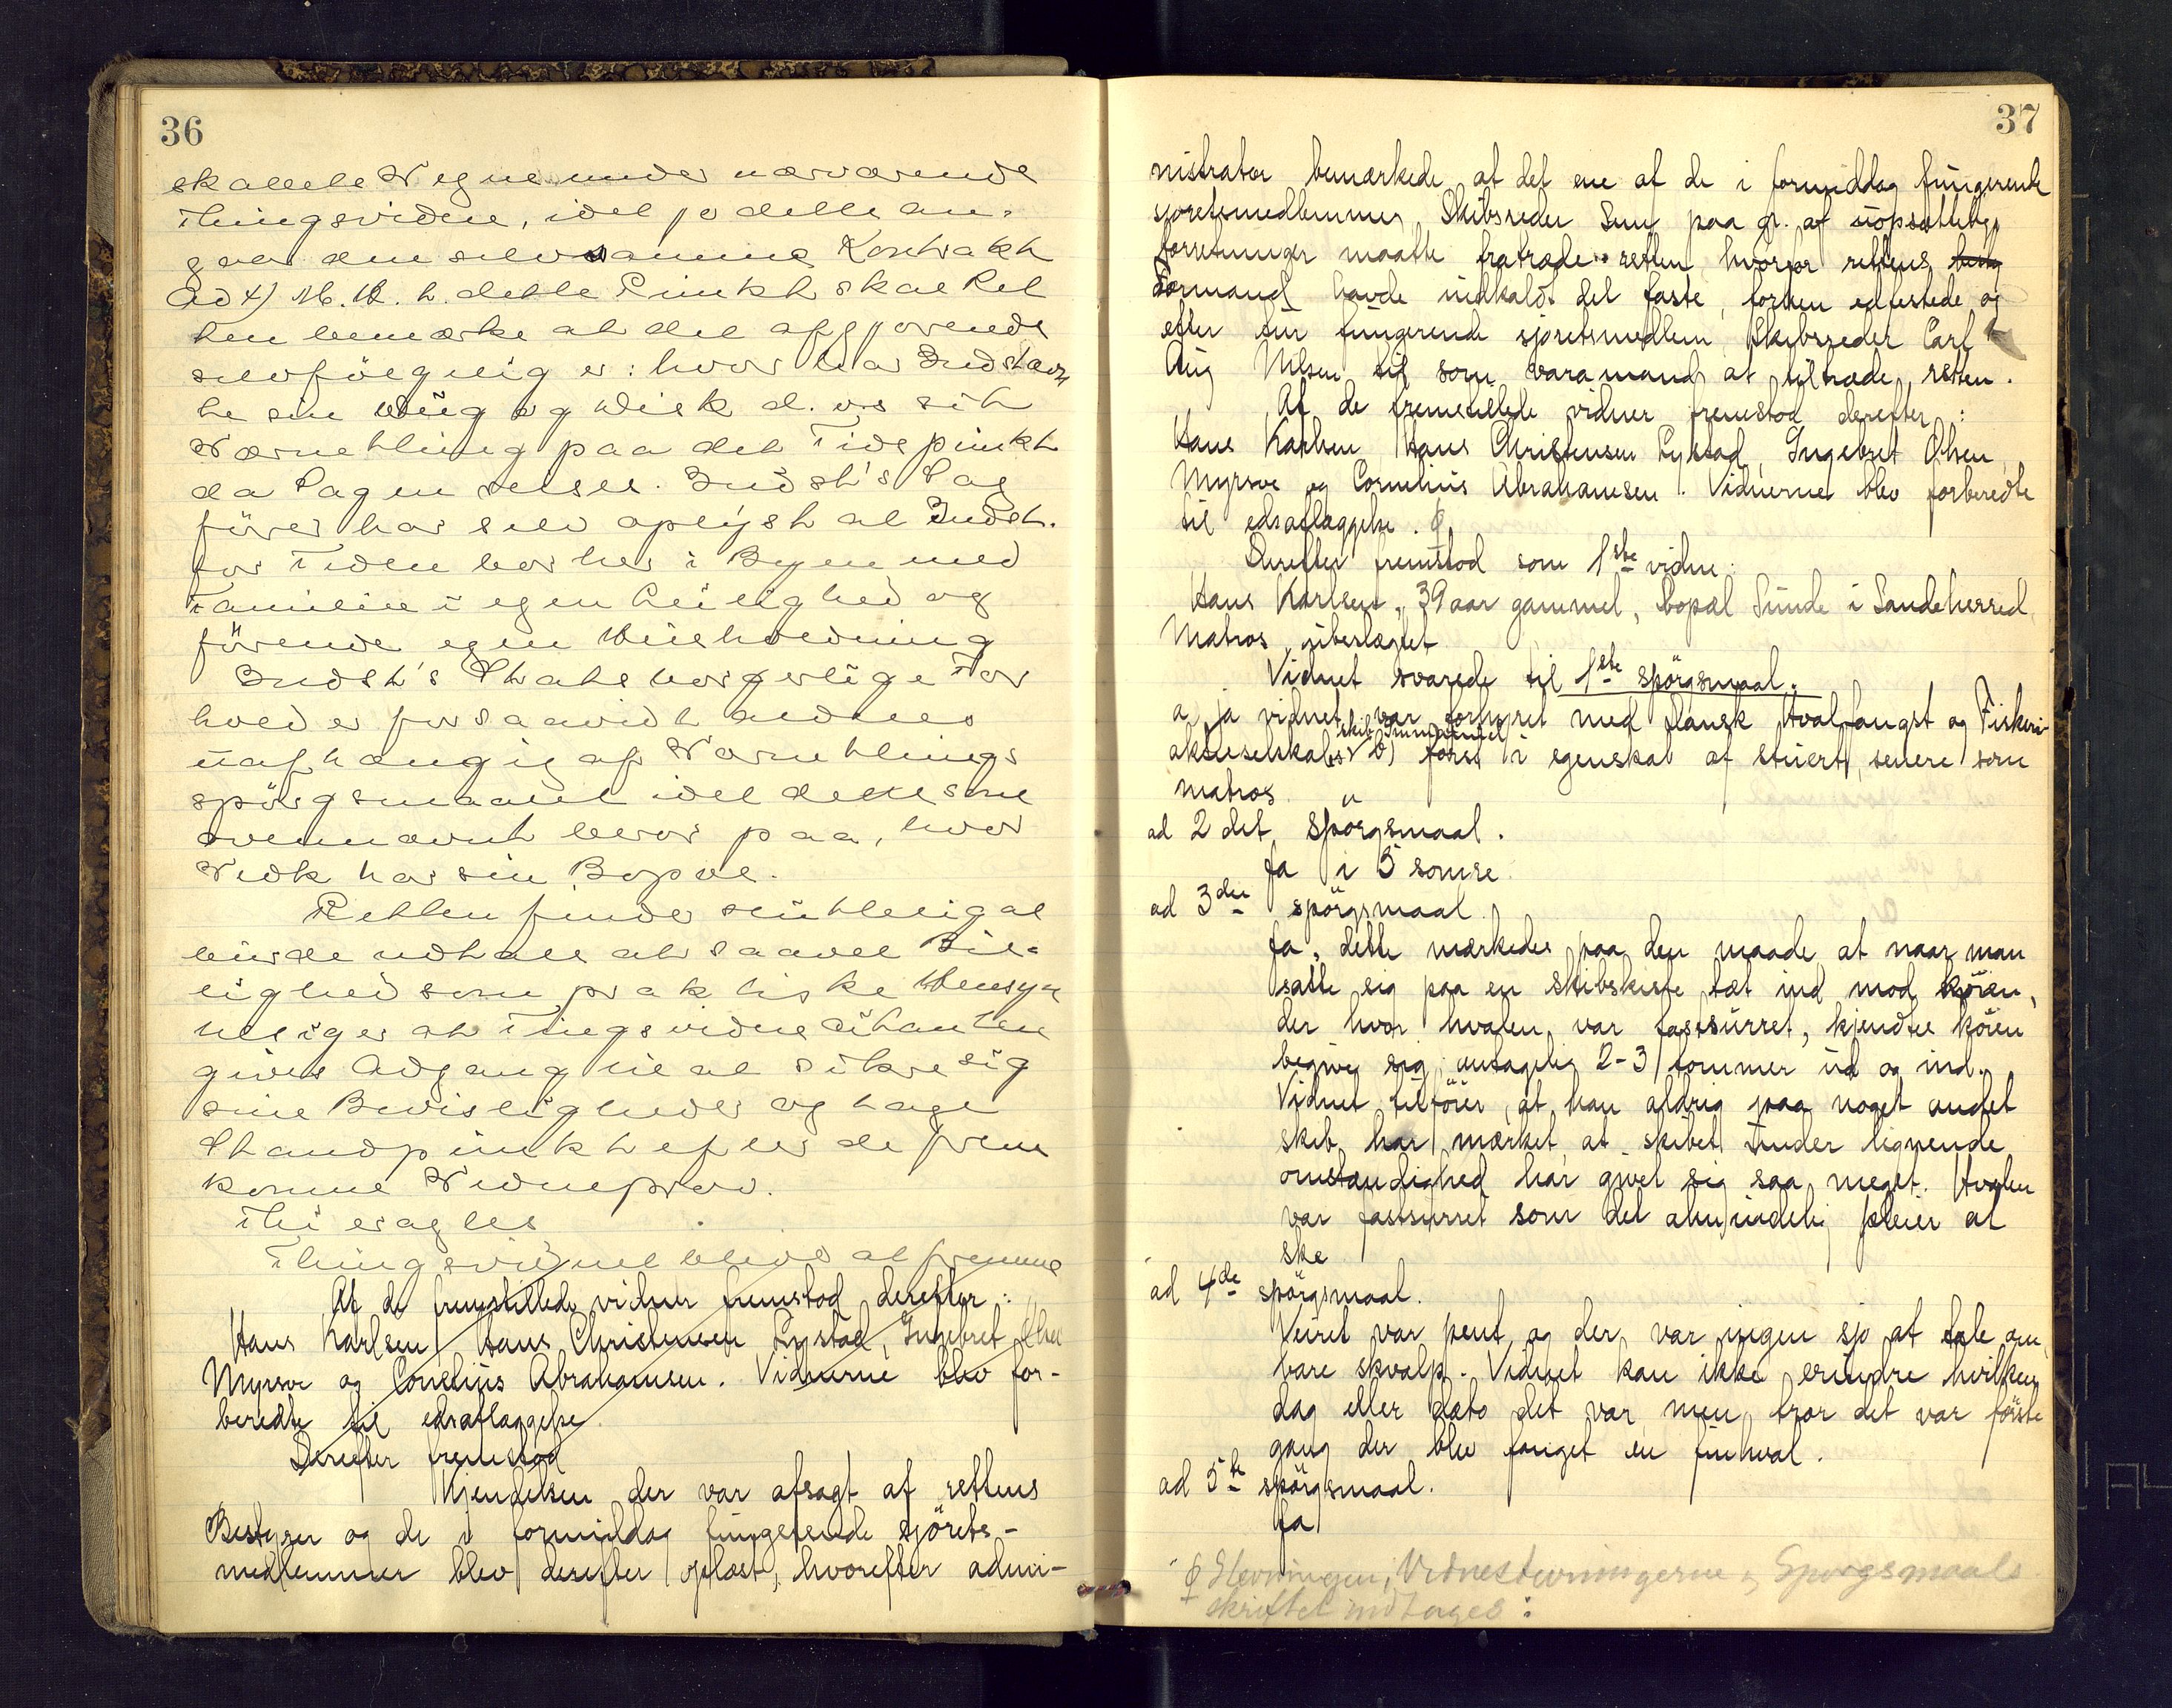 36
skabets Vegne under nærværende
Thingsvidne, idet jo dette an-
gaar den selvsamme Kontrakt
Ad 4) M. H. t. dette Punkt skal Ret
ten bemærke at det afgjørende
selvfölgelig er: hvor har Indstævn
te sin Dug og Disk d. v. s sit
Værnething paa det Tidspunkt
da Sagen reises. Indst's Sag
förer har selv oplyst at Indst.
for Tiden bor her i Byen med
Familie i egen Leilighed og
förende egen Husholdning
Indst's Statsborgerlige For
hold er forsaavidt aldeles
uafhængig af Værnethings
spörgsmaalet idet dette som
ovennævnt beror paa, hvor
Vedk har sin Bopæl.
Retten finder sluttelig at
burde udtale at saavel Bil-
lighed som praktiske Hensyn
tilsiger at Tingsvidneudtageren
gives Adgang til at sikre sig
sine Bevisligheder og tage
Standpunkt efter de frem
komne Vidneprov.
Thi eragtes
Thingsvidnet blive at fremme
Af de fremstillede vidner fremstod derefter:
Hans Karlsen, Hans Christensen Lystad, Ingebret Olsen
Myrsve og Cornelius Abrahamsen. Vidnerne blev for-
beredte til edsaflæggelse.
Derefter fremstod
Kjendelsen der var afsagt af rettens
Bestyrer og de i formiddag fungerende sjörets-
medlemmer blev derefter oplæst, hvorefter admi-
37
nistrator bemærkede at det ene af de i formiddag fungerende
sjoretsmedlemmer, Skibsreder Sun paa gr. af uopsættelige
forretninger maatte fratræde retten, hvorfor rettens
Formand havde indkaldt det faste, forhen edfestede og
ofte för fungerende sjoretsmedlem Skibsreder Carl
Aug Nilsen til som varamand at tiltræde retten.
Af de fremstillede vidner fremstod derefter:
Hans Karlsen, Hans Christensen Lystad, Ingebret Olsen
Myrsve og Cornelius Abrahamsen. Vidnerne blev forberedte
til edsaflæggelse. ϕ
Derefter fremstod som 1ste vidne:
Hans Karlsen, 39 aar gammel, bopæl Sunde i Sandeherred,
Matros, ubeslægtet
Vidnet svarede til 1ste spörgsmaal.
a, ja vidnet var forhyret med Dansk Hvalfangst og Fiskeri-
skib Immanuel
aktieselskabs √ b) först i egenskab af stuert, senere som
matros
ad 2det spörgsmaal.
Ja i 5 somre.
ad 3die spörgsmaal.
Ja, dette mærkedes paa den maade at naar man
satte sig paa en skibskiste tæt ind mod köien,
der hvor hvalen var fastsurret, kjendtes köien
begive sig antagelig 2-3 tommer ud og ind.
Vidnet tilförer, at han aldrig paa noget andet
skib har mærket at skibet under lignende
omstændighed har givet sig saa meget. Hvalen
var fastsurret som det almindelig pleier at
ske
ad 4de spörgsmaal.
Veiret var pent, og der var ingen sjo at tale om,
bare skvalp. Vidnet kan ikke erindre hvilken
dag eller dato det var, men tror det var förste
gang der blev fanget en finhval.
ad 5te spörgsmaal.
Ja
ϕ Stevningen, Vidnestevningerne og Spørgsmaals
skriftet indtages: